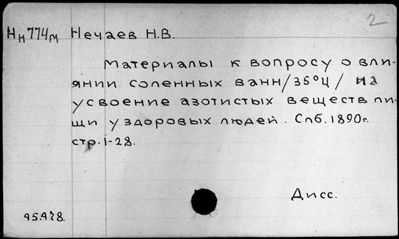 Нн774м Нечаев Н.В.
2
Материалы к вопросу о вли-
янии соленных ванн/35°Ц/ на
усвоение азотистых веществ пи-
щи у здоровых людей. Спб. 1890г.
стр. 1-28.
Дисс.
95428.